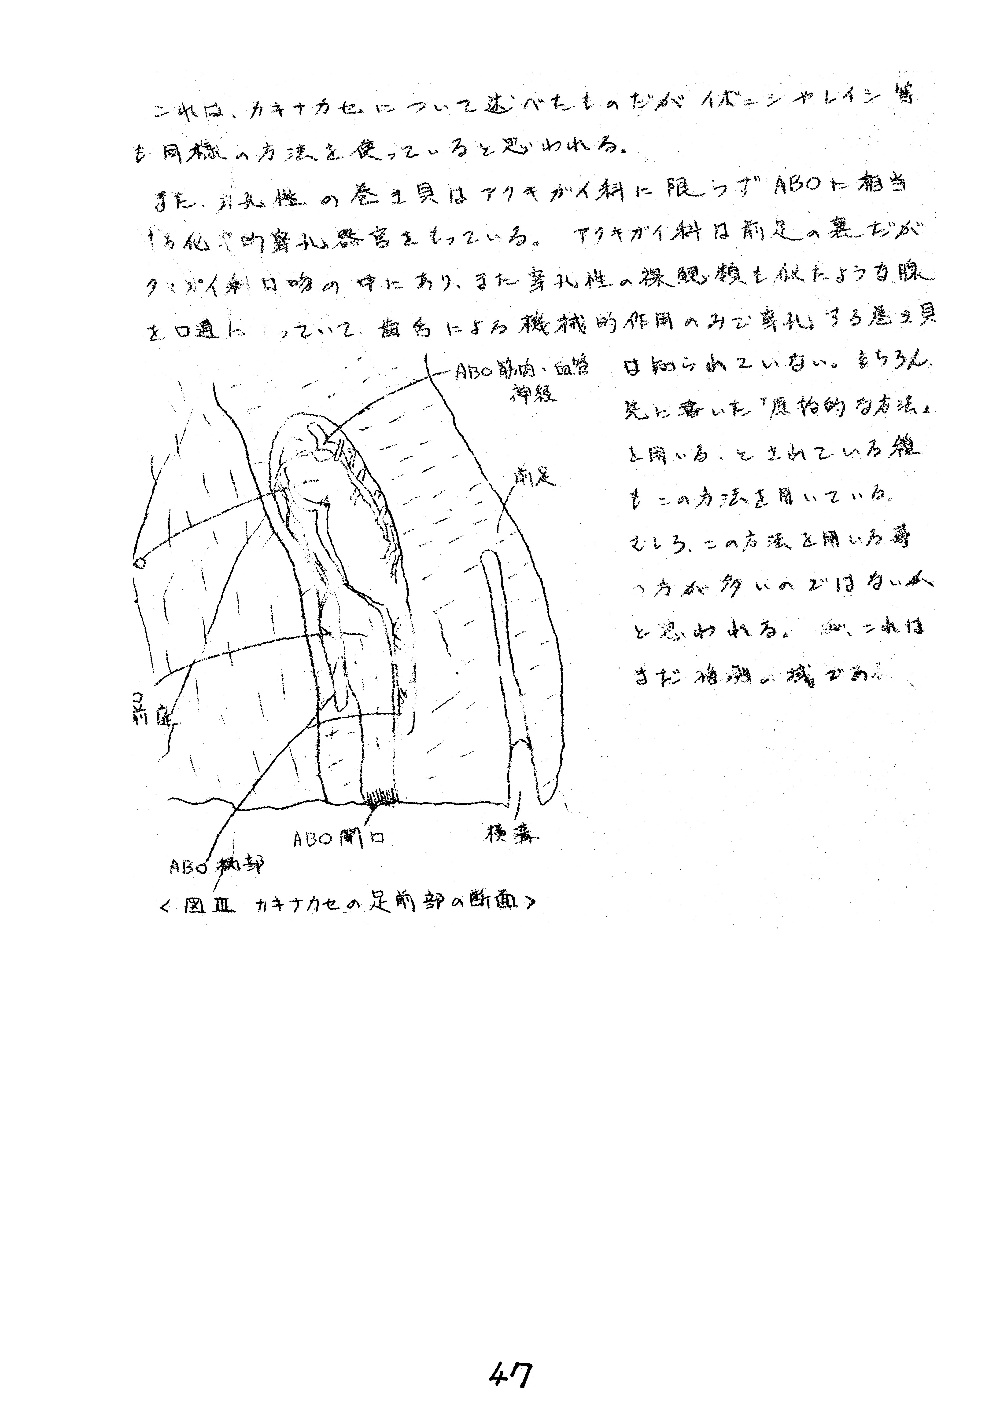 これは、カキナカセについて述べたものだが イボニシやレイシ 等
も同様の方法を使っていると思われる。
また、穿孔性の巻き貝はアクキガイ科に限らず ABOに相当
する化学的穿孔器官をもっている。 アクキガイ科は前足の裏だが
タマガイ科は吻の中にあり、また穿孔性の裸鰓類も似たような腺
を口道に っていて、歯舌による機械的作用のみで穿孔する巻き貝
は知られていない。もちろん、
先に書いた「原始的な方法」
を用いる、とされている種
もこの方法を用いている。
むしろ、この方法を用いる
方が多いのではないか
と思われる。 これは
まだ推測の域であ
ABO筋肉・血管
神経
前足
前庭
ABO開口
横溝
ABO柄部
<図Ⅲ カキナカセの足前部の断面>
47